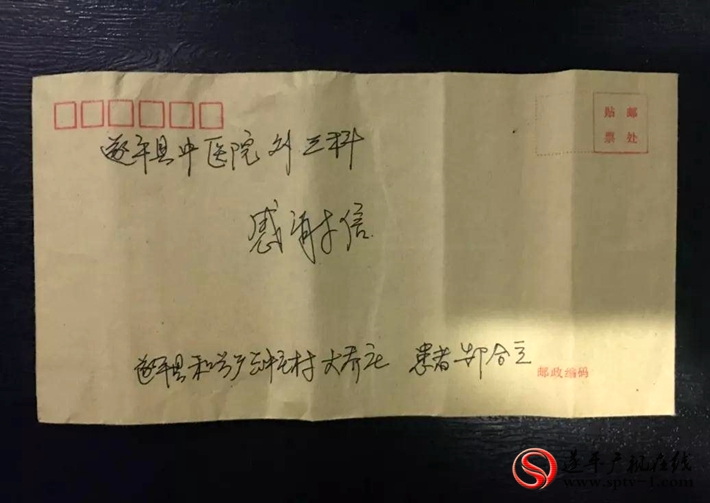 贴 邮
票 处
遂平县中医院外三科
感谢信
遂平县和兴乡 村大乔庄 患者 郑合立
邮政编码
遂平广视在线
www.sptv-1.com